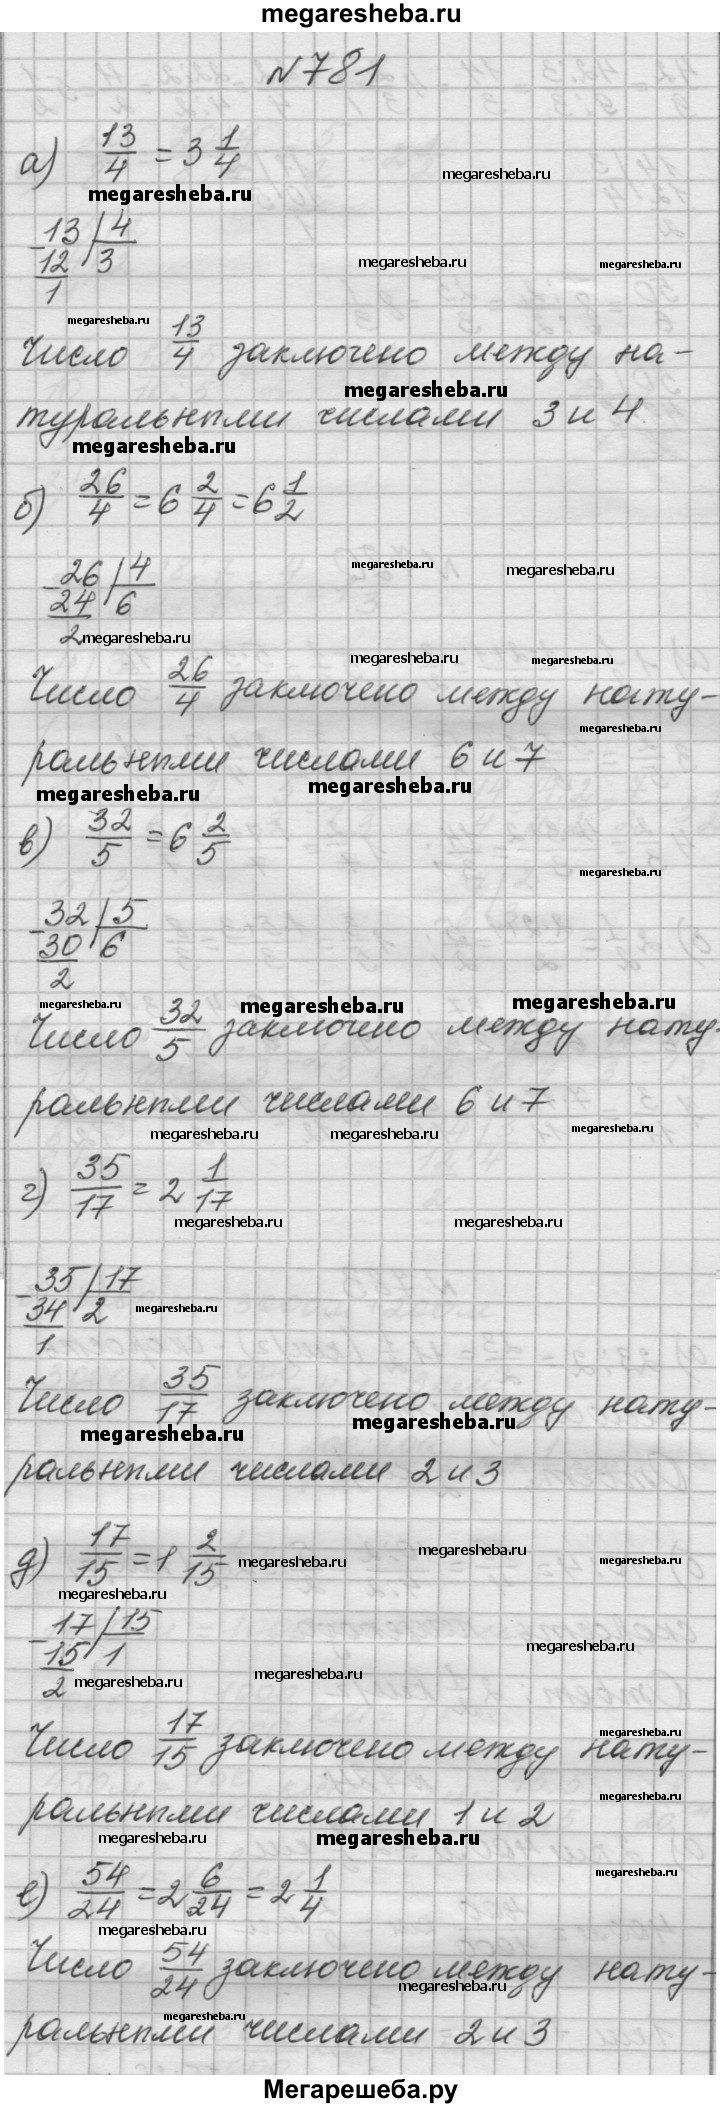 megaresheba.ru
№781
а) 13/4 = 3 1/4
megaresheba.ru
megaresheba.ru
13 | 4
megaresheba.ru
megaresheba.ru
12 3
1
megaresheba.ru
Число 13/4 заключено между на-
megaresheba.ru
туральными числами 3 и 4.
megaresheba.ru
б) 26/4 = 6 2/4 = 6 1/2
megaresheba.ru
megaresheba.ru
26 | 4
24 6
2
megaresheba.ru
megaresheba.ru
megaresheba.ru
Число 26/4 заключено между нату-
megaresheba.ru
ральными числами 6 и 7
megaresheba.ru
megaresheba.ru
в) 32/5 = 6 2/5
megaresheba.ru
32 | 5
30 6
2
megaresheba.ru
megaresheba.ru
megaresheba.ru
Число 32/5 заключено между нату-
ральными числами 6 и 7
megaresheba.ru
megaresheba.ru
megaresheba.ru
г) 35/17 = 2 1/17
megaresheba.ru
megaresheba.ru
35 | 17
34 2
megaresheba.ru
1
Число 35/17 заключено между нату-
megaresheba.ru
megaresheba.ru
ральными числами 2 и 3
д) 17/15 = 1 2/15
megaresheba.ru
megaresheba.ru
megaresheba.ru
megaresheba.ru
17 | 15
15 1
megaresheba.ru
2
megaresheba.ru
megaresheba.ru
Число 17/15 заключено между нату-
megaresheba.ru
megaresheba.ru
ральными числами 1 и 2
megaresheba.ru
megaresheba.ru
е) 54/24 = 2 6/24 = 2 1/4
megaresheba.ru
megaresheba.ru
Число 54/24 заключено между нату-
megaresheba.ru
megaresheba.ru
ральными числами 2 и 3
Мегарешеба.ру